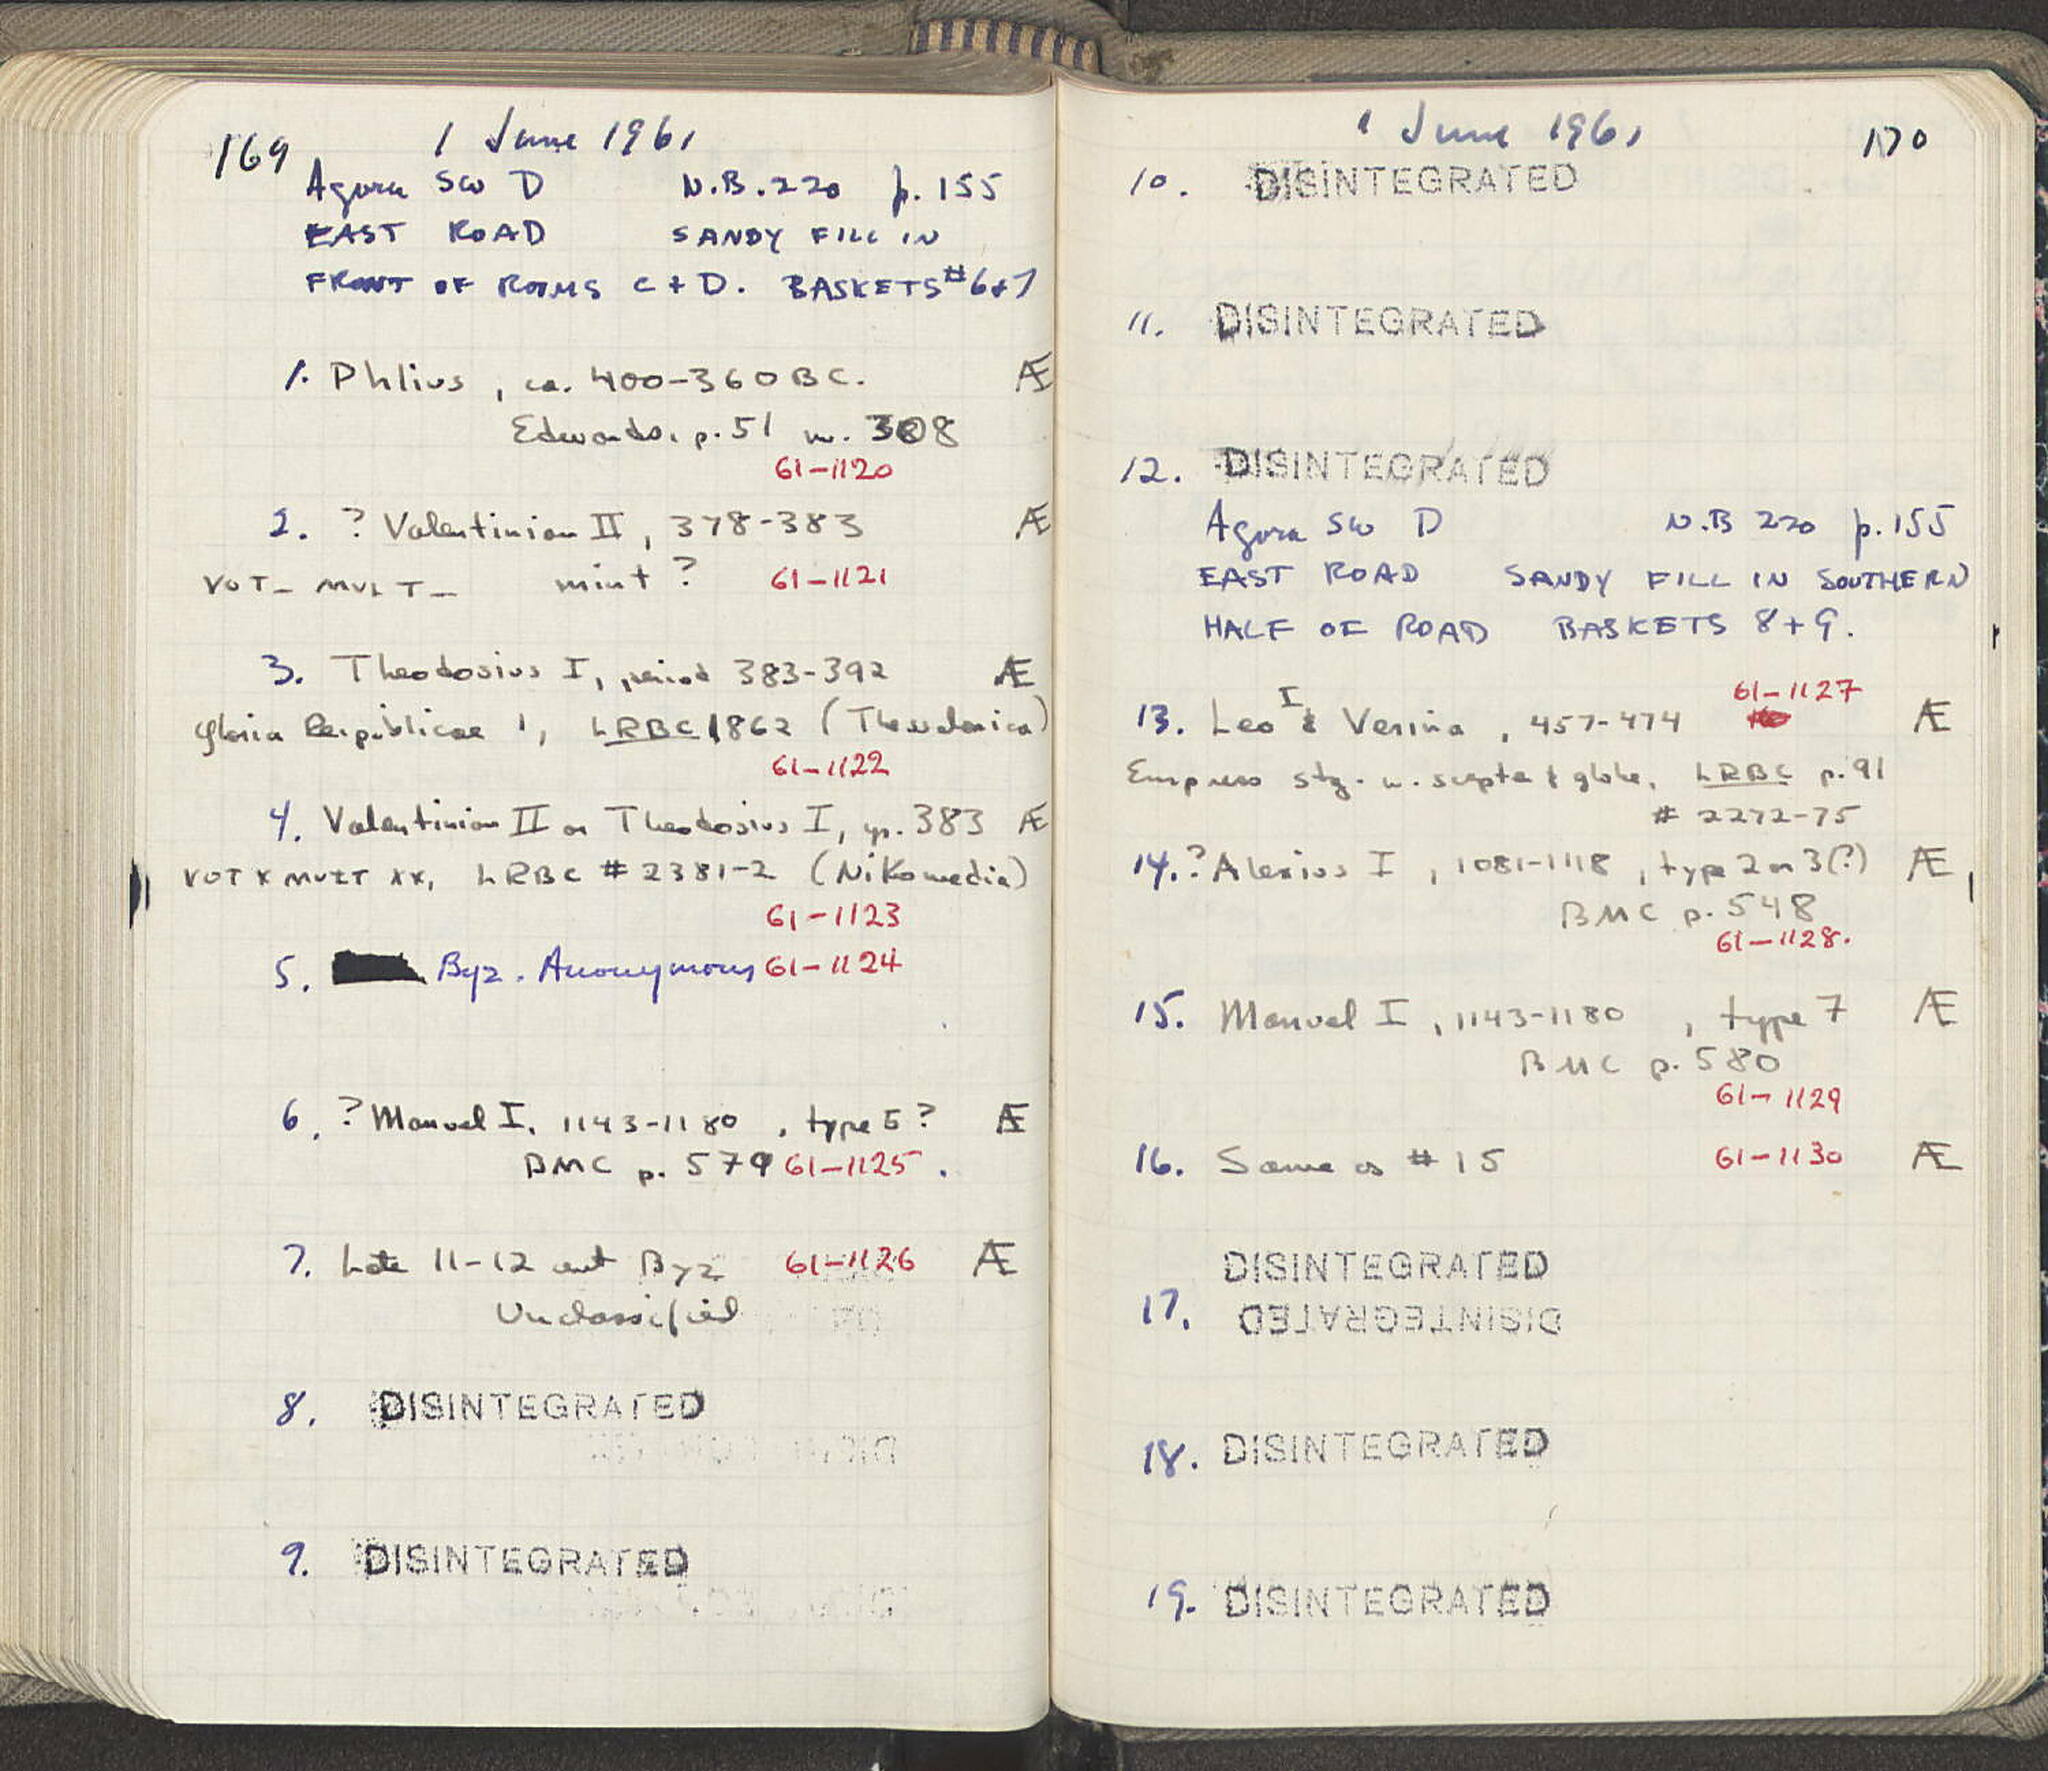 169 1 June 1961
Agora SW D N.B. 220 p. 155
EAST ROAD SANDY FILL IN
FRONT OF ROOMS C + D. BASKETS #6+7
1. Phlius, ca. 400-360 BC. Æ
Edwards, p. 51 n. 308
61-1120
2. ? Valentinian II, 378-383 Æ
VOT_ MULT_ mint? 61-1121
3. Theodosius I, period 383-392 Æ
Gloria Reipublicae 1, LRBC 1862 (Thessalonica)
61-1122
4. Valentinian II or Theodosius I, yr. 383 Æ
VOT X MULT XX, LRBC # 2381-2 (Nikomedia)
61-1123
5. Byz. Anonymous 61-1124
6. ? Manuel I, 1143-1180, type 5? Æ
BMC p. 579 61-1125.
7. Late 11-12 cent Byz 61-1126 Æ
Unclassified
8. DISINTEGRATED
9. DISINTEGRATED
1 June 1961 170
10. DISINTEGRATED
11. DISINTEGRATED
12. DISINTEGRATED
Agora SW D N.B 220 p. 155
EAST ROAD SANDY FILL IN SOUTHERN
HALF OF ROAD BASKETS 8+9.
61-1127
13. Leo I & Verina, 457-474 Æ
Empress stg. w. scepter & globe, LRBC p. 91
# 2272-75
14. ? Alexius I, 1081-1118, type 2 or 3(?) Æ
BMC p. 548
61-1128.
15. Manuel I, 1143-1180, type 7 Æ
BMC p. 580
61-1129
16. Same as #15 61-1130 Æ
DISINTEGRATED
17. DISINTEGRATED
18. DISINTEGRATED
19. DISINTEGRATED